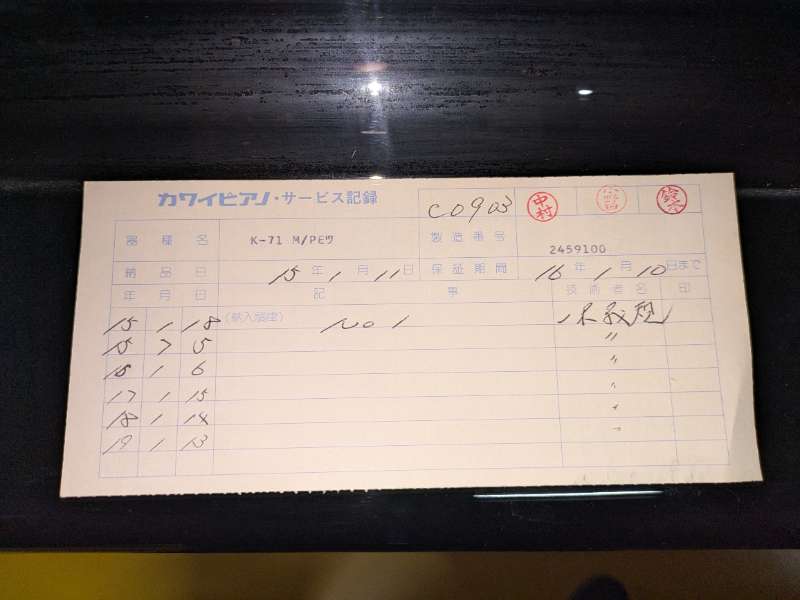 カワイピアノ・サービス記録
C0903
中村
器種名 K-71 M/PEワ 製造番号 2459100
納品日 15年1月11日 保証期間 16年1月10日まで
年月日 記事 技術者名 印
15 1 18 (納入調律) NO1
15 7 5 〃
16 1 6 〃
17 1 15 〃
18 1 14 〃
19 1 13 〃